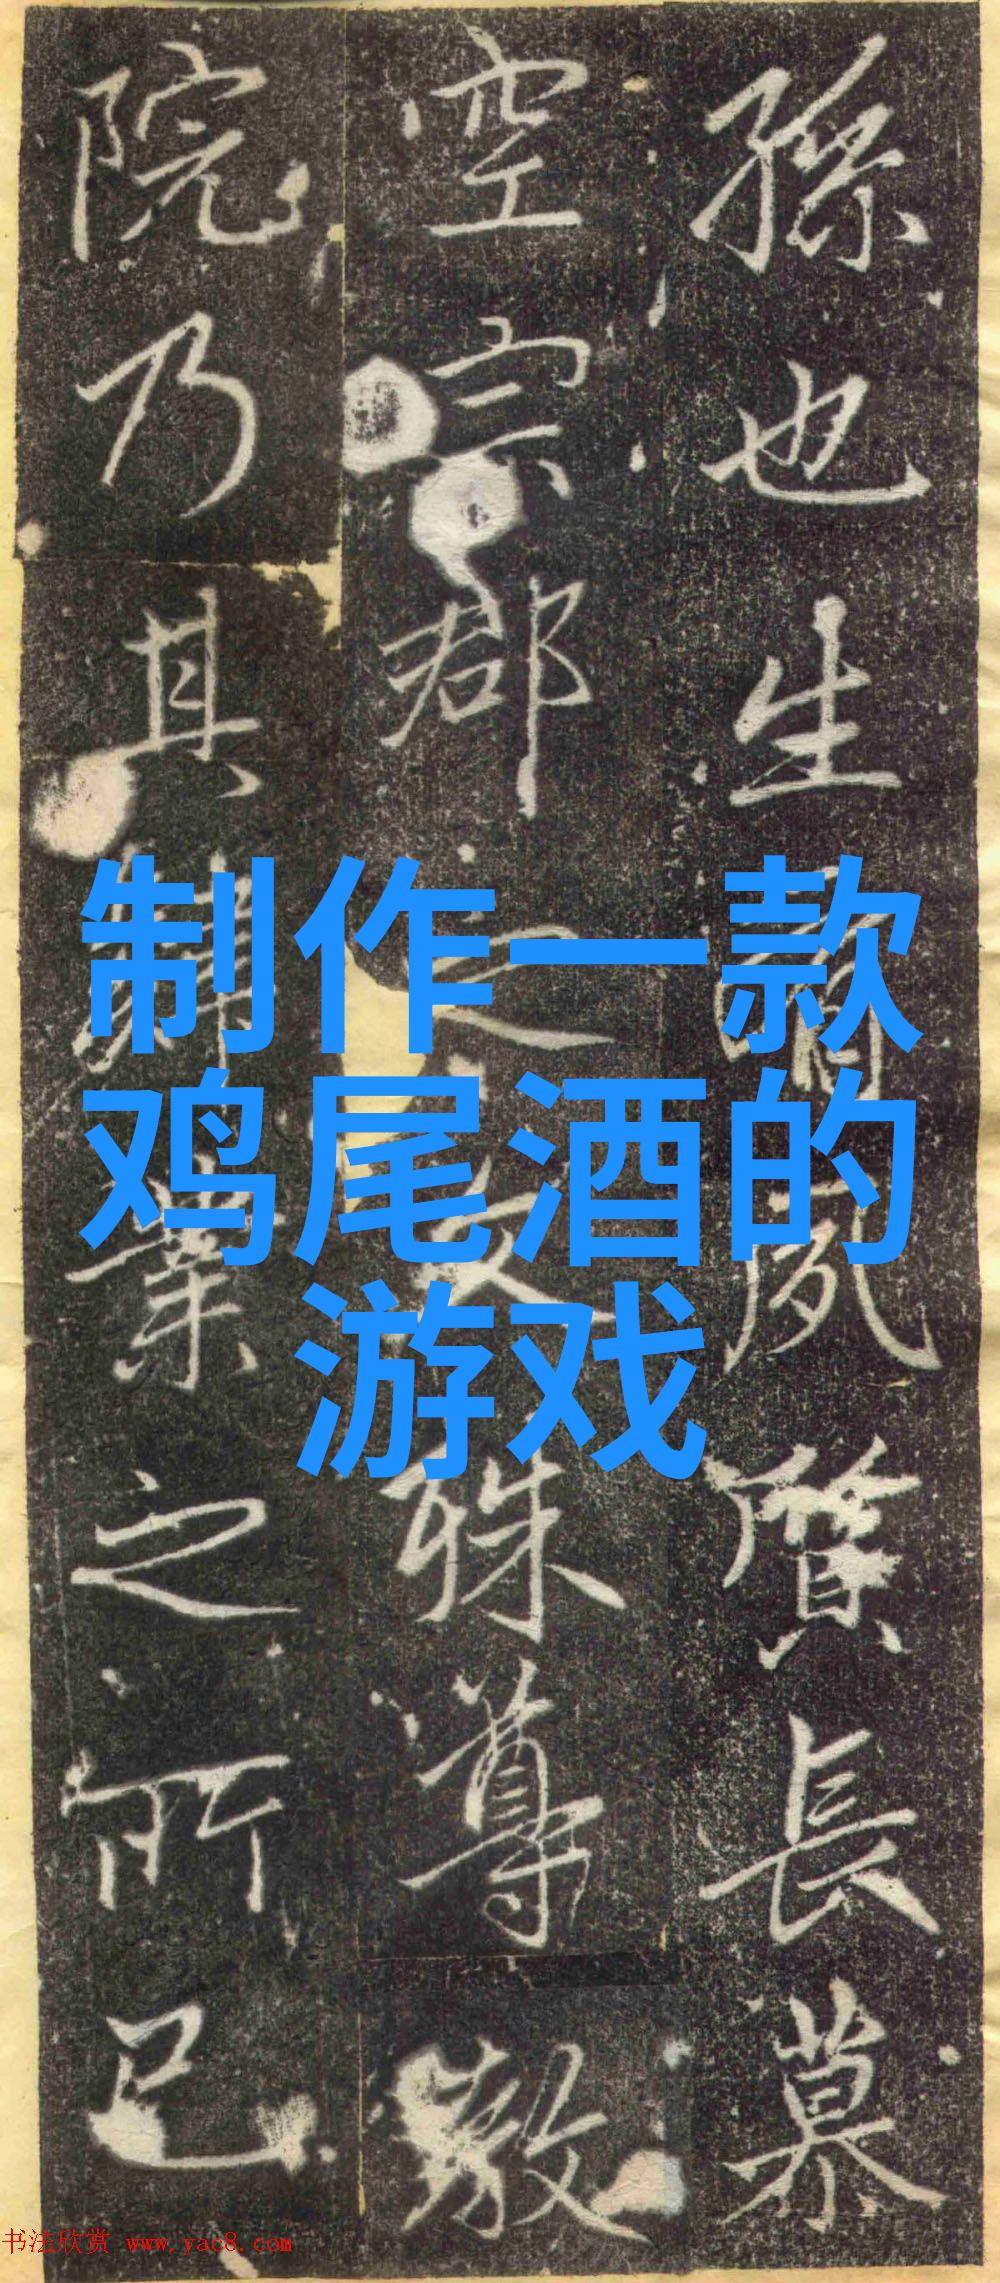 孫也生夙質長慕
空宗郡之文殊尊教
院乃其業之所已
制作一款
鸡尾酒的
游戏
书法欣赏 www.yac8.com